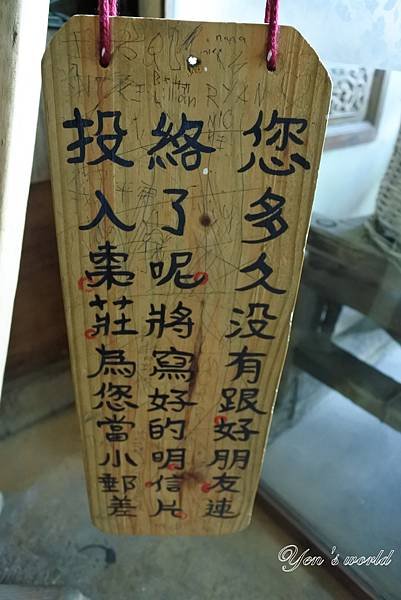 您多久没有跟好朋友連
絡了呢將寫好的明信片
投入棗莊為您當小郵差
nana
RYAN
Lillian
NIC
Yen's world